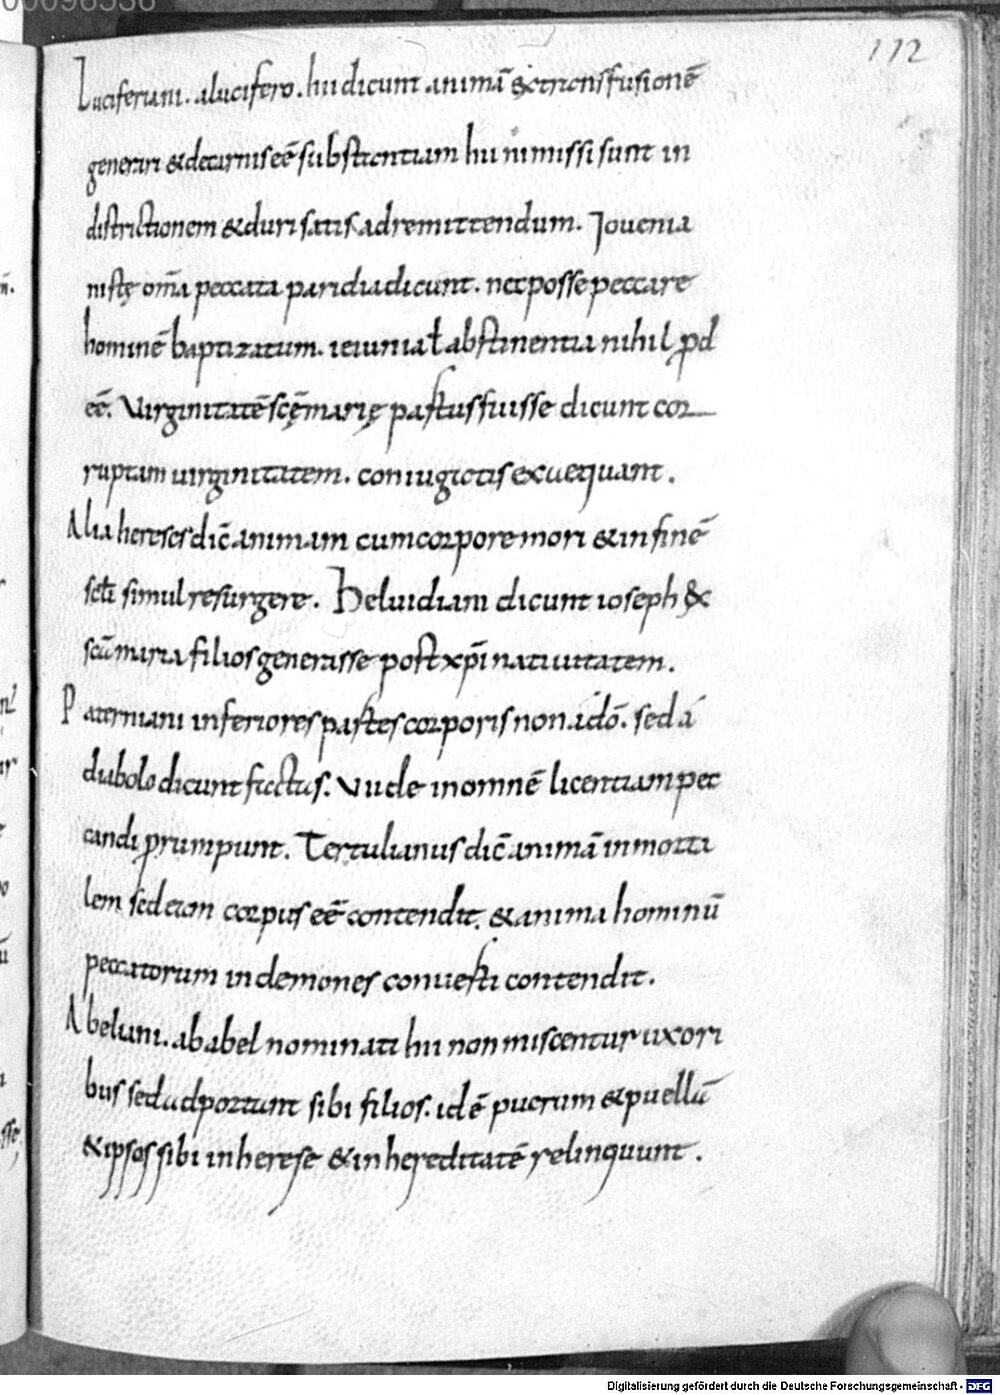 00096536
112
Luciferiani. a lucifero. hii dicunt animā ex transfusionē
generari & de carnis eē substantiam hii nimis si sunt in
districtionem & duri satis ad remittendum. Iouenia
nistę om̄a peccata paria dicunt. nec posse peccare
hominē baptizatum. ieiunia ł abstinentia nihil pd
eē. Virginitatē scę̄ marię partus fuisse dicunt cor
ruptam uirginitatem. coniugiatis exaequant.
Alia hereses dic̄ animam cum corpore mori & in finē
scłi simul resurgere. Heluidiani dicunt ioseph &
scā maria filios generasse post xp̄i natiuitatem.
Paterniani inferiores partes corporis non a dō. sed a
diabolo dicunt factus. Vnde in omnē licentiam pec
candi prumpunt. Tertulianus dic̄ animā inmorta
lem sed eam corpus eē contendit. & anima hominū
peccatorum in demones conuerti contendit.
Abeliani. ab abel nominati hii non miscentur uxori
bus sed adportant sibi filios. id ē puerum & puellā
& ipsos sibi in herese & in hereditatē relinquunt.
Digitalisierung gefördert durch die Deutsche Forschungsgemeinschaft - DFG